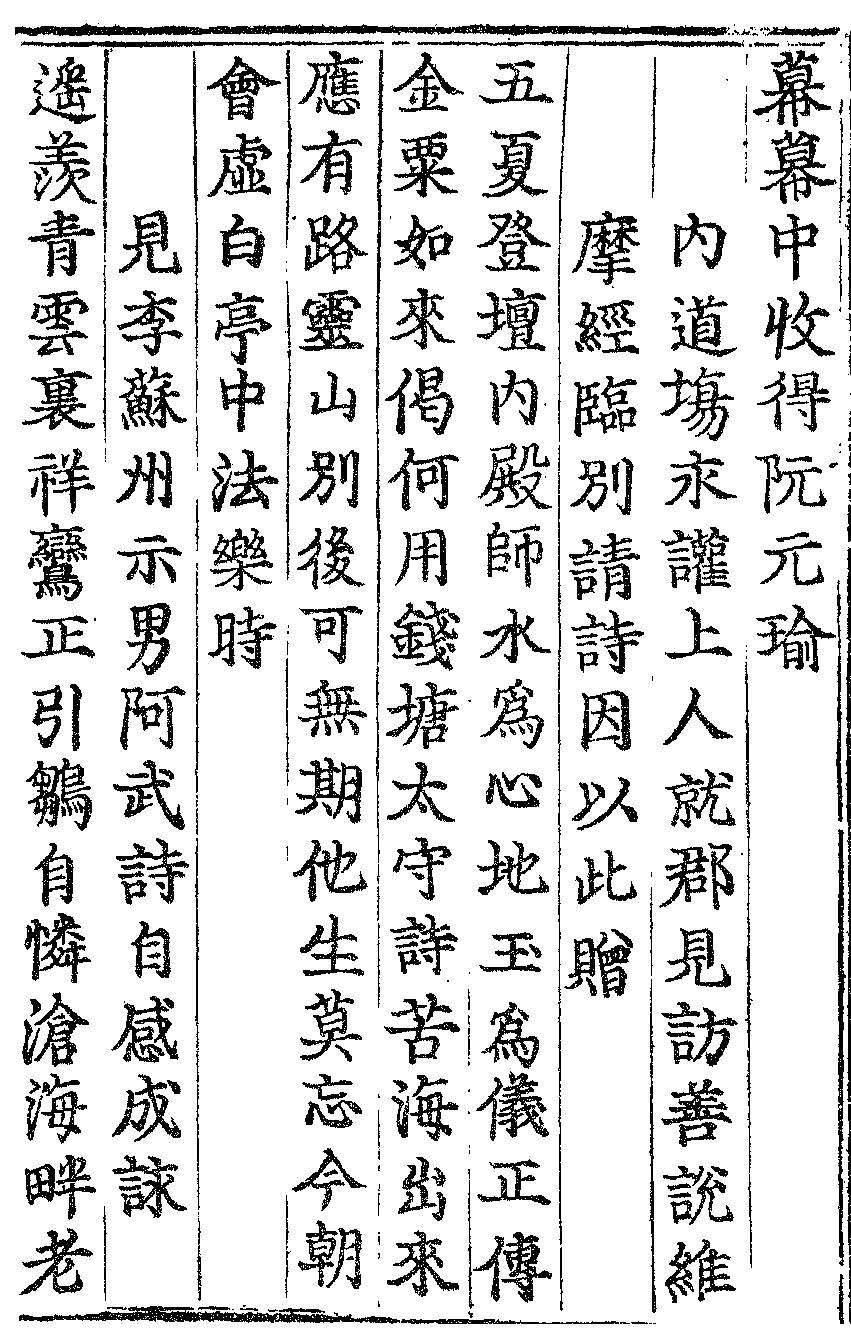 幕幕中收得阮元瑜
內道場永讙上人就郡見訪善說維
摩經臨別請詩因以此贈
五夏登壇內殿師水爲心地玉爲儀正傳
金粟如來偈何用錢塘太守詩苦海出來
應有路靈山別後可無期他生莫忘今朝
會虛白亭中法樂時
見李蘇州示男阿武詩自感成詠
遥羨青雲裏祥鸞正引鶵自憐滄海畔老